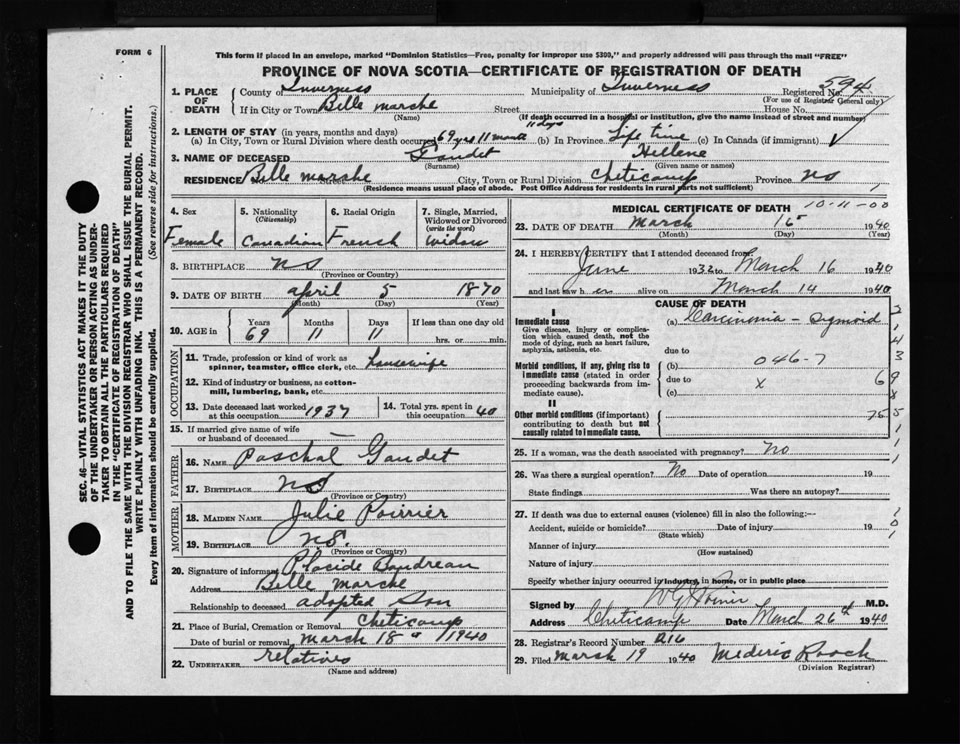 FORM 6
This form if placed in an envelope, marked "Dominion Statistics—Free, penalty for improper use $300," and properly addressed will pass through the mail "FREE"
PROVINCE OF NOVA SCOTIA—CERTIFICATE OF REGISTRATION OF DEATH
SEC. 46—VITAL STATISTICS ACT MAKES IT THE DUTY
OF THE UNDERTAKER OR PERSON ACTING AS UNDER-
TAKER TO OBTAIN ALL THE PARTICULARS REQUIRED
IN THE "CERTIFICATE OF REGISTRATION OF DEATH"
AND TO FILE THE SAME WITH THE DIVISION REGISTRAR WHO SHALL ISSUE THE BURIAL PERMIT.
WRITE PLAINLY WITH UNFADING INK. THIS IS A PERMANENT RECORD.
Every item of information should be carefully supplied. (See reverse side for instructions.)
1. PLACE OF DEATH
County of Inverness Municipality of Inverness Registered No. 594
(For use of Registrar General only)
If in City or Town Belle marche Street House No.
(Name) (If death occurred in a hospital or institution, give the name instead of street and number)
2. LENGTH OF STAY (in years, months and days)
11 days
(a) In City, Town or Rural Division where death occurred 69 yrs 11 month (b) In Province Life time (c) In Canada (if immigrant)
3. NAME OF DECEASED Gaudet Hellene
(Surname) (Given name or names)
RESIDENCE Belle marche Street City, Town or Rural Division Cheticamp Province NS
(Residence means usual place of abode. Post Office Address for residents in rural parts not sufficient)
4. Sex Female
5. Nationality (Citizenship) Canadian
6. Racial Origin French
7. Single, Married, Widowed or Divorced (write the word) Widow
8. BIRTHPLACE NS
(Province or Country)
9. DATE OF BIRTH april 5 1870
(Month) (Day) (Year)
10. AGE in Years 69 Months 11 Days 11 If less than one day old hrs. or min.
OCCUPATION
11. Trade, profession or kind of work as spinner, teamster, office clerk, etc. housewife
12. Kind of industry or business, as cotton-mill, lumbering, bank, etc.
13. Date deceased last worked at this occupation 1937
14. Total yrs. spent in this occupation 40
15. If married give name of wife or husband of deceased —
FATHER
16. NAME Paschal Gaudet
17. BIRTHPLACE NS
(Province or Country)
MOTHER
18. MAIDEN NAME Julie Poirrier
19. BIRTHPLACE NS.
(Province or Country)
20. Signature of informant Placide Boudreau
Address Belle marche
Relationship to deceased adopted Son
21. Place of Burial, Cremation or Removal Cheticamp
Date of burial or removal march 18 1940
22. UNDERTAKER relatives
(Name and address)
MEDICAL CERTIFICATE OF DEATH 10-11-00
23. DATE OF DEATH March 16 1940
(Month) (Day) (Year)
24. I HEREBY CERTIFY that I attended deceased from
June 1932 to March 16 1940
and last saw her alive on March 14 1940
CAUSE OF DEATH
I
Immediate cause
Give disease, injury or complication which caused death, not the mode of dying, such as heart failure, asphyxia, asthenia, etc.
(a) Carcinoma - Sigmoid
due to
Morbid conditions, if any, giving rise to immediate cause (stated in order proceeding backwards from immediate cause).
(b) 046-7
due to x
(c)
II
Other morbid conditions (if important) contributing to death but not causally related to immediate cause.
25. If a woman, was the death associated with pregnancy? No
26. Was there a surgical operation? No Date of operation 19
State findings Was there an autopsy?
27. If death was due to external causes (violence) fill in also the following:—
Accident, suicide or homicide? Date of injury 19
(State which)
Manner of injury
(How sustained)
Nature of injury
Specify whether injury occurred in industry, in home, or in public place
Signed by M.D.
Address Cheticamp Date March 26th 1940
28. Registrar's Record Number 216
29. Filed march 19 1940 Mederic Roach
(Division Registrar)